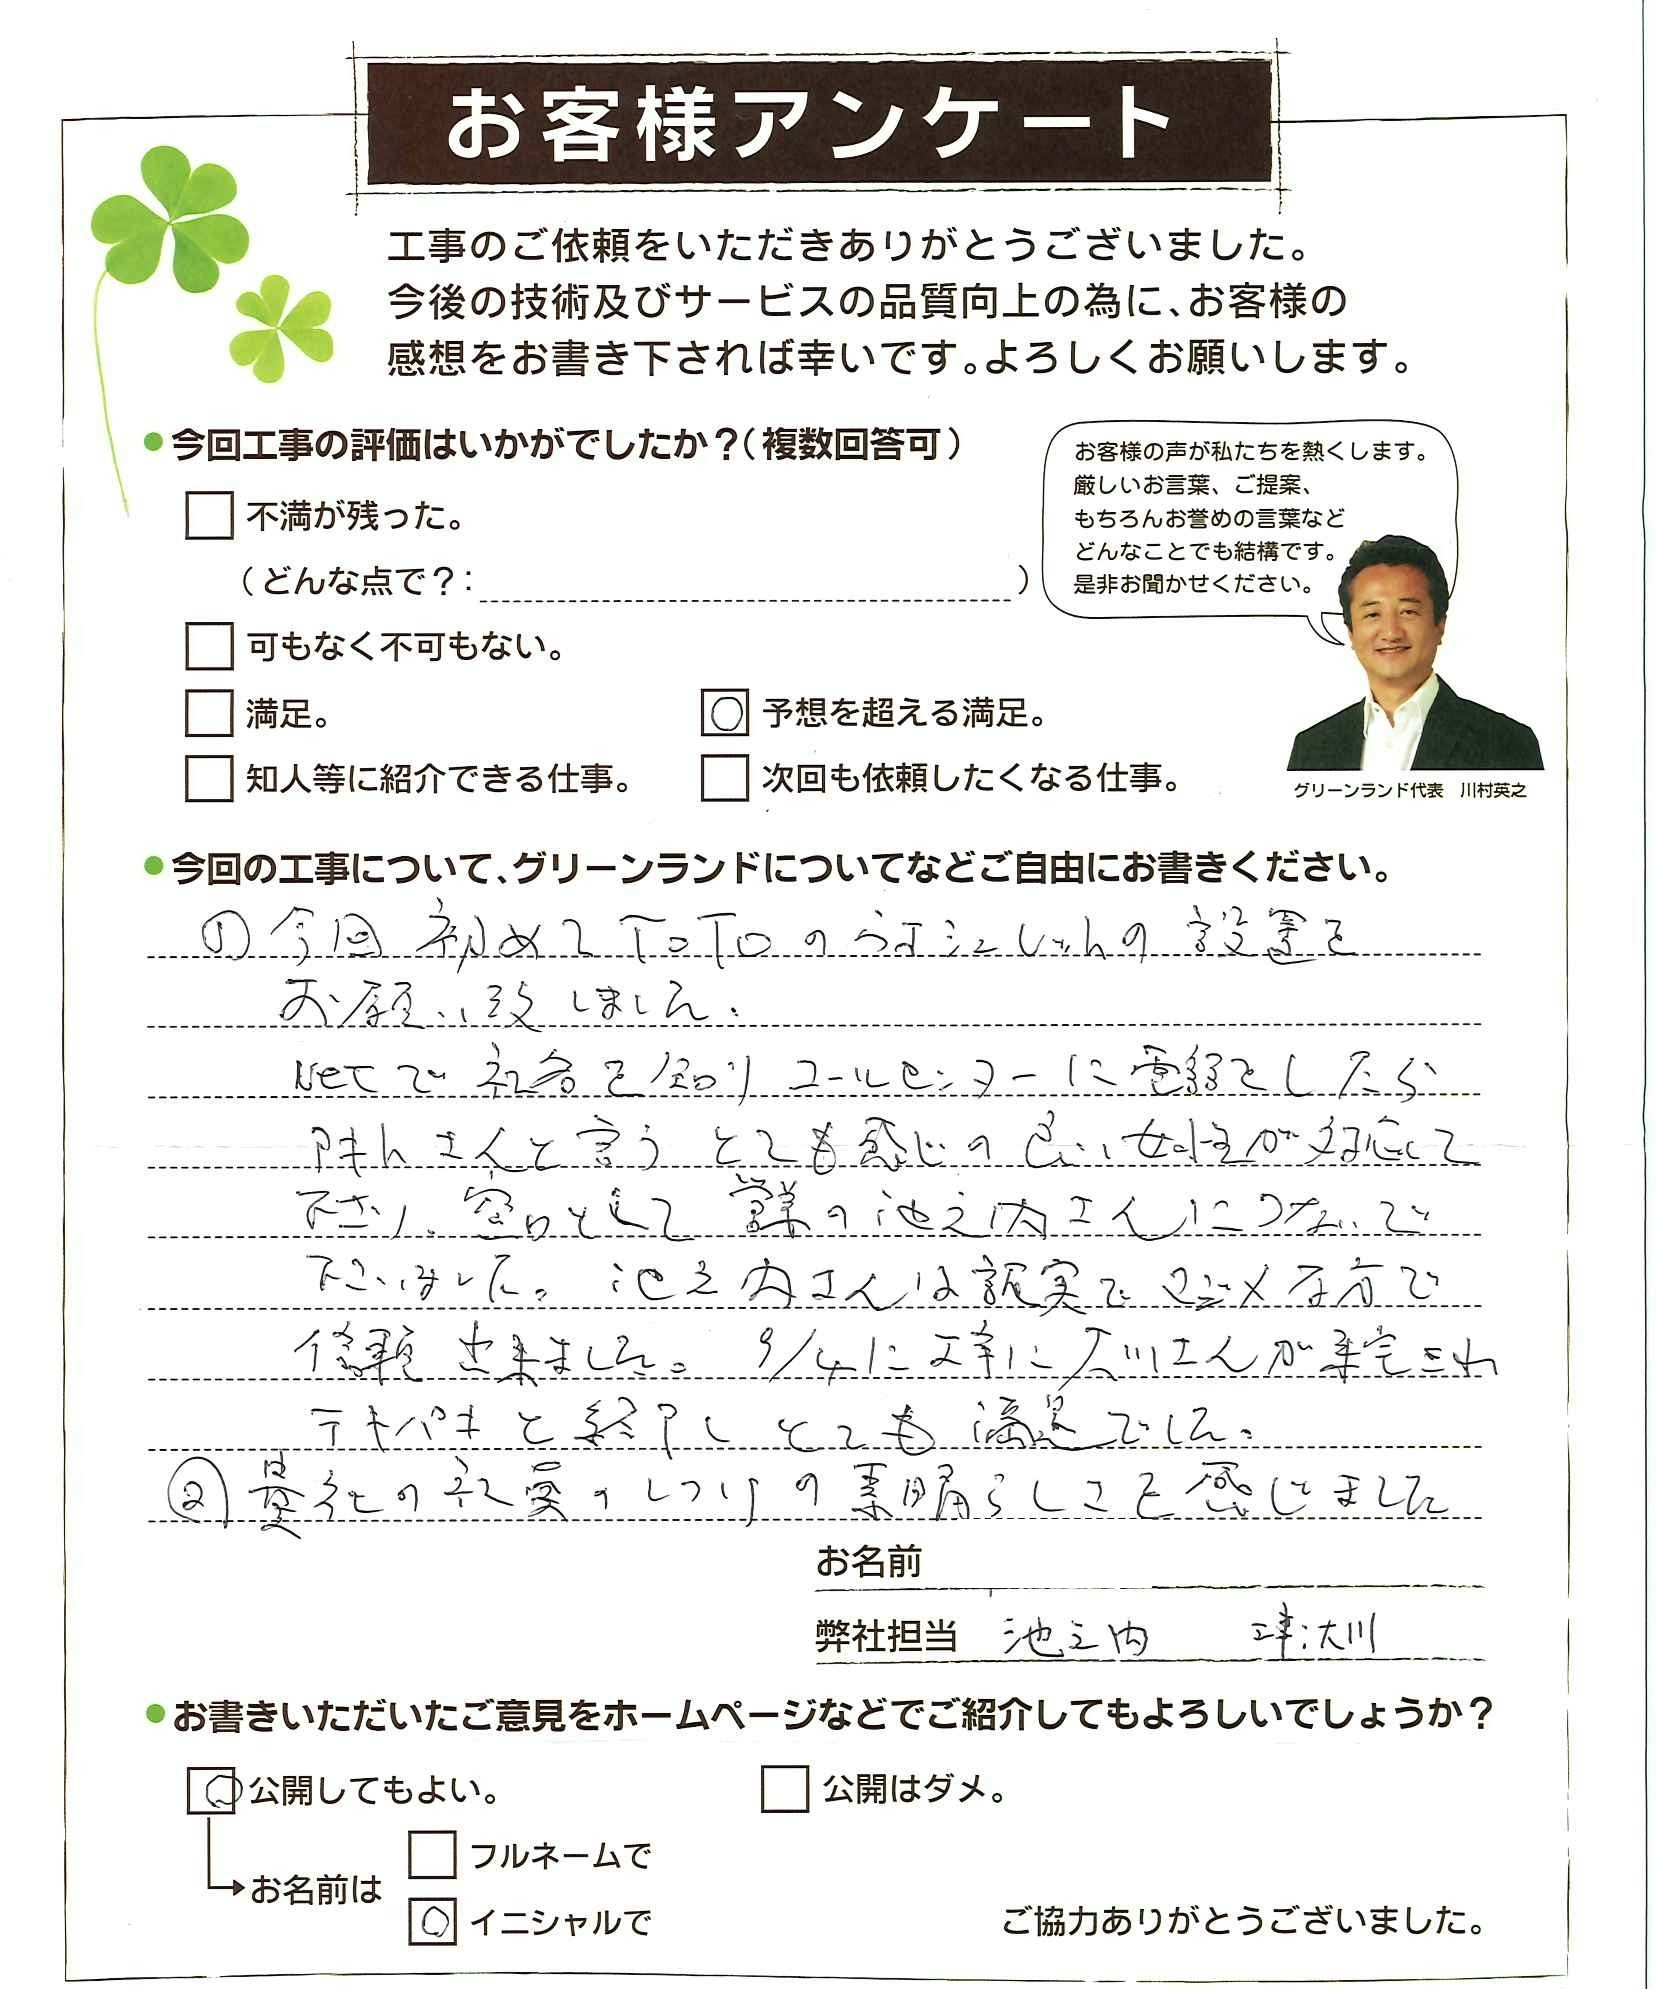 お客様アンケート
工事のご依頼をいただきありがとうございました。
今後の技術及びサービスの品質向上の為に、お客様の
感想をお書き下されば幸いです。よろしくお願いします。
●今回工事の評価はいかがでしたか?(複数回答可)
不満が残った。
(どんな点で?: )
可もなく不可もない。
満足。
○ 予想を超える満足。
知人等に紹介できる仕事。
次回も依頼したくなる仕事。
お客様の声が私たちを熱くします。
厳しいお言葉、ご提案、
もちろんお誉めの言葉など
どんなことでも結構です。
是非お聞かせください。
グリーンランド代表 川村英之
●今回の工事について、グリーンランドについてなどご自由にお書きください。
① 今回 初めて TOTOのウォシュレットの設置を
お願い致しました。
Netで社名を知りコールセンターに電話をしたら
さんと言う とても感じの良い女性が対応して
下さり、窓口として営業の池之内さんにつないで
下さいました。池之内さんは誠実でマジメな方で
信頼出来ました。 9/4に工事に大川さんが来宅され
テキパキと終了し とても満足でした。
② 貴社の社員のしつけの素晴らしさを感じました
お名前
弊社担当 池之内 工事:大川
●お書きいただいたご意見をホームページなどでご紹介してもよろしいでしょうか?
○ 公開してもよい。
公開はダメ。
お名前は
フルネームで
○ イニシャルで
ご協力ありがとうございました。